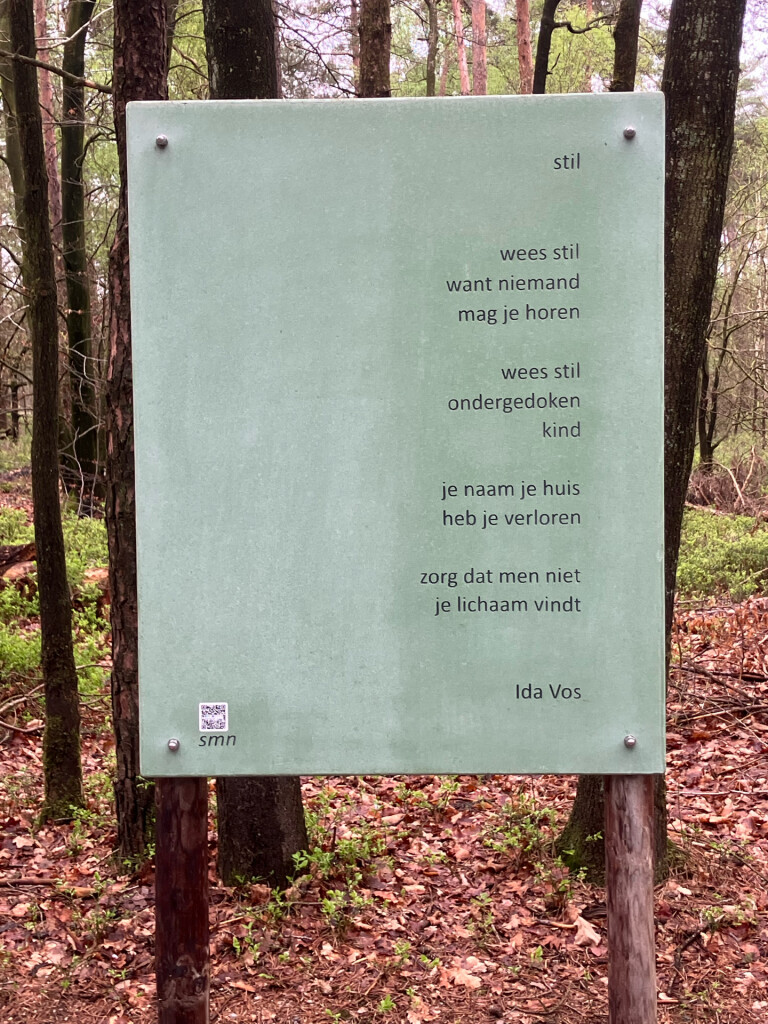 stil
wees stil
want niemand
mag je horen
wees stil
ondergedoken
kind
je naam je huis
heb je verloren
zorg dat men niet
je lichaam vindt
Ida Vos
smn